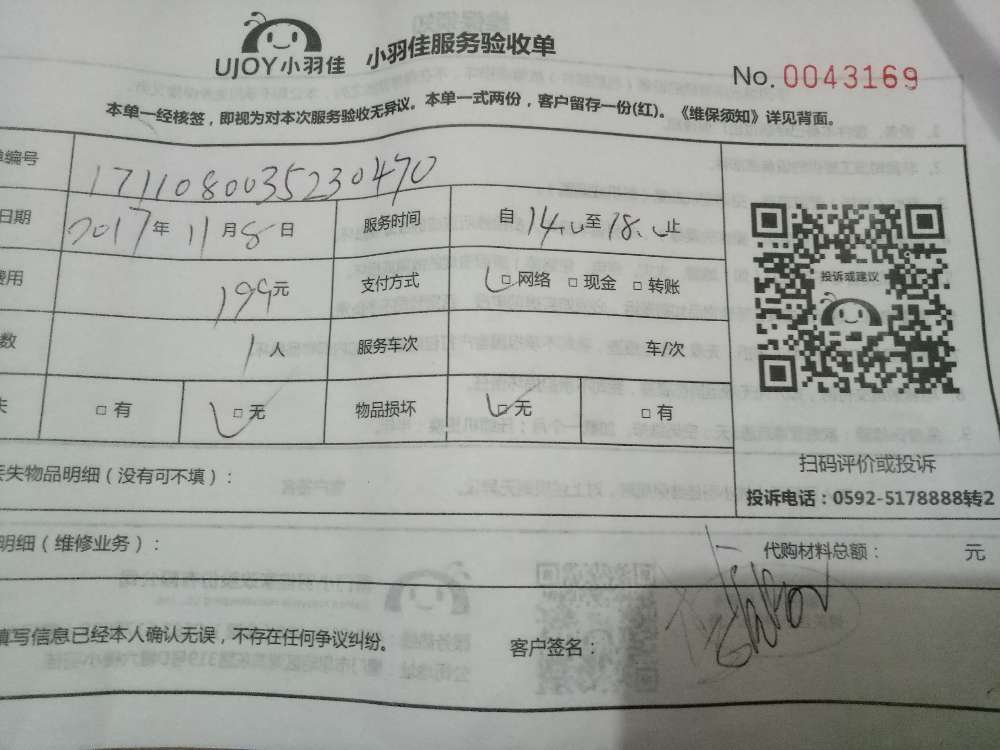 UJOY小羽佳 小羽佳服务验收单
No. 0043169
本单一经核签，即视为对本次服务验收无异议。本单一式两份，客户留存一份(红)。《维保须知》详见背面。
编号 1711080035230470
日期 2017年11月8日 服务时间 自14.0至18.0止
费用 199元 支付方式 □网络 □现金 □转账
数 1人 服务车次 车/次
失 □有 □无 物品损坏 □无 □有
投诉或建议
扫码评价或投诉
投诉电话：0592-5178888转2
丢失物品明细（没有可不填）：
明细（维修业务）： 代购材料总额： 元
填写信息已经本人确认无误，不存在任何争议纠纷。 客户签名：